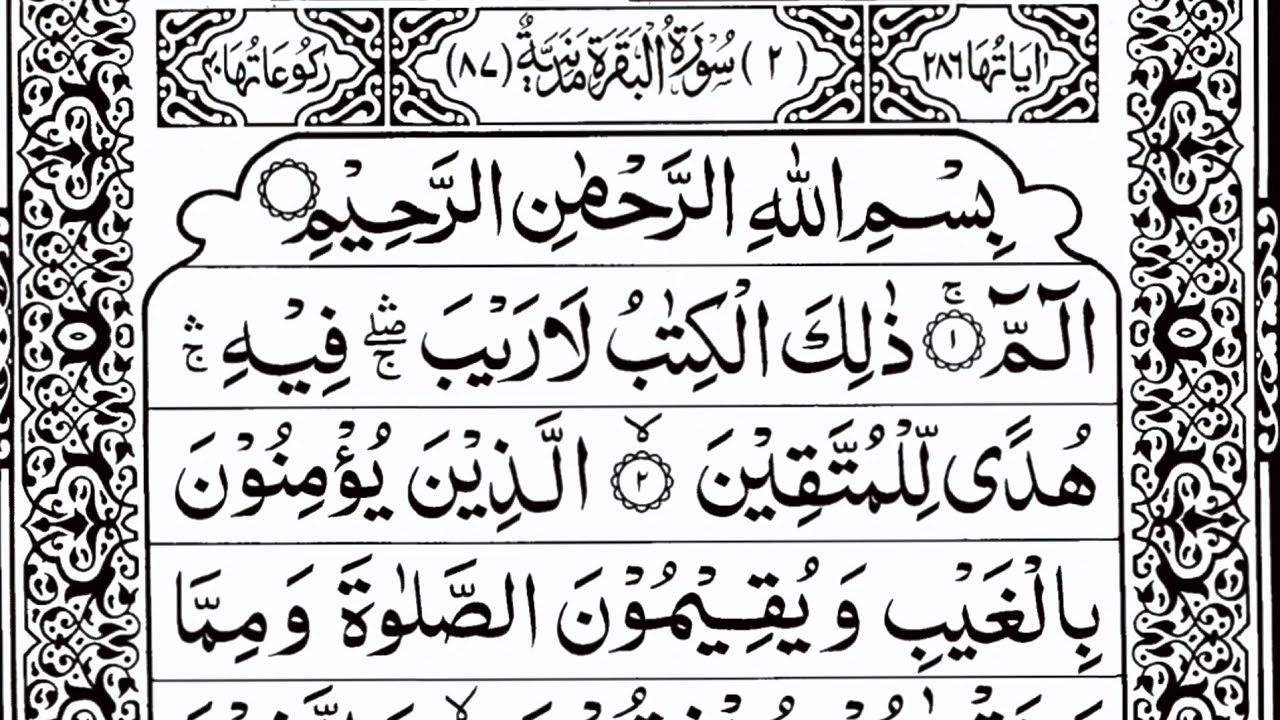 اٰيَاتُهَا ٢٨٦ (٢) سُوْرَةُ الْبَقَرَةِ مَدَنِيَّةٌ (٨٧) رُكُوْعَاتُهَا ٤٠
بِسْمِ اللّٰهِ الرَّحْمٰنِ الرَّحِيْمِ
الٓمّٓ ۚ ﴿١﴾ ذٰلِكَ الْكِتٰبُ لَا رَيْبَ ۛۖۚ فِيْهِ ۛۚ
هُدًى لِّلْمُتَّقِيْنَ ۙ ﴿٢﴾ الَّذِيْنَ يُؤْمِنُوْنَ
بِالْغَيْبِ وَ يُقِيْمُوْنَ الصَّلٰوةَ وَ مِمَّا